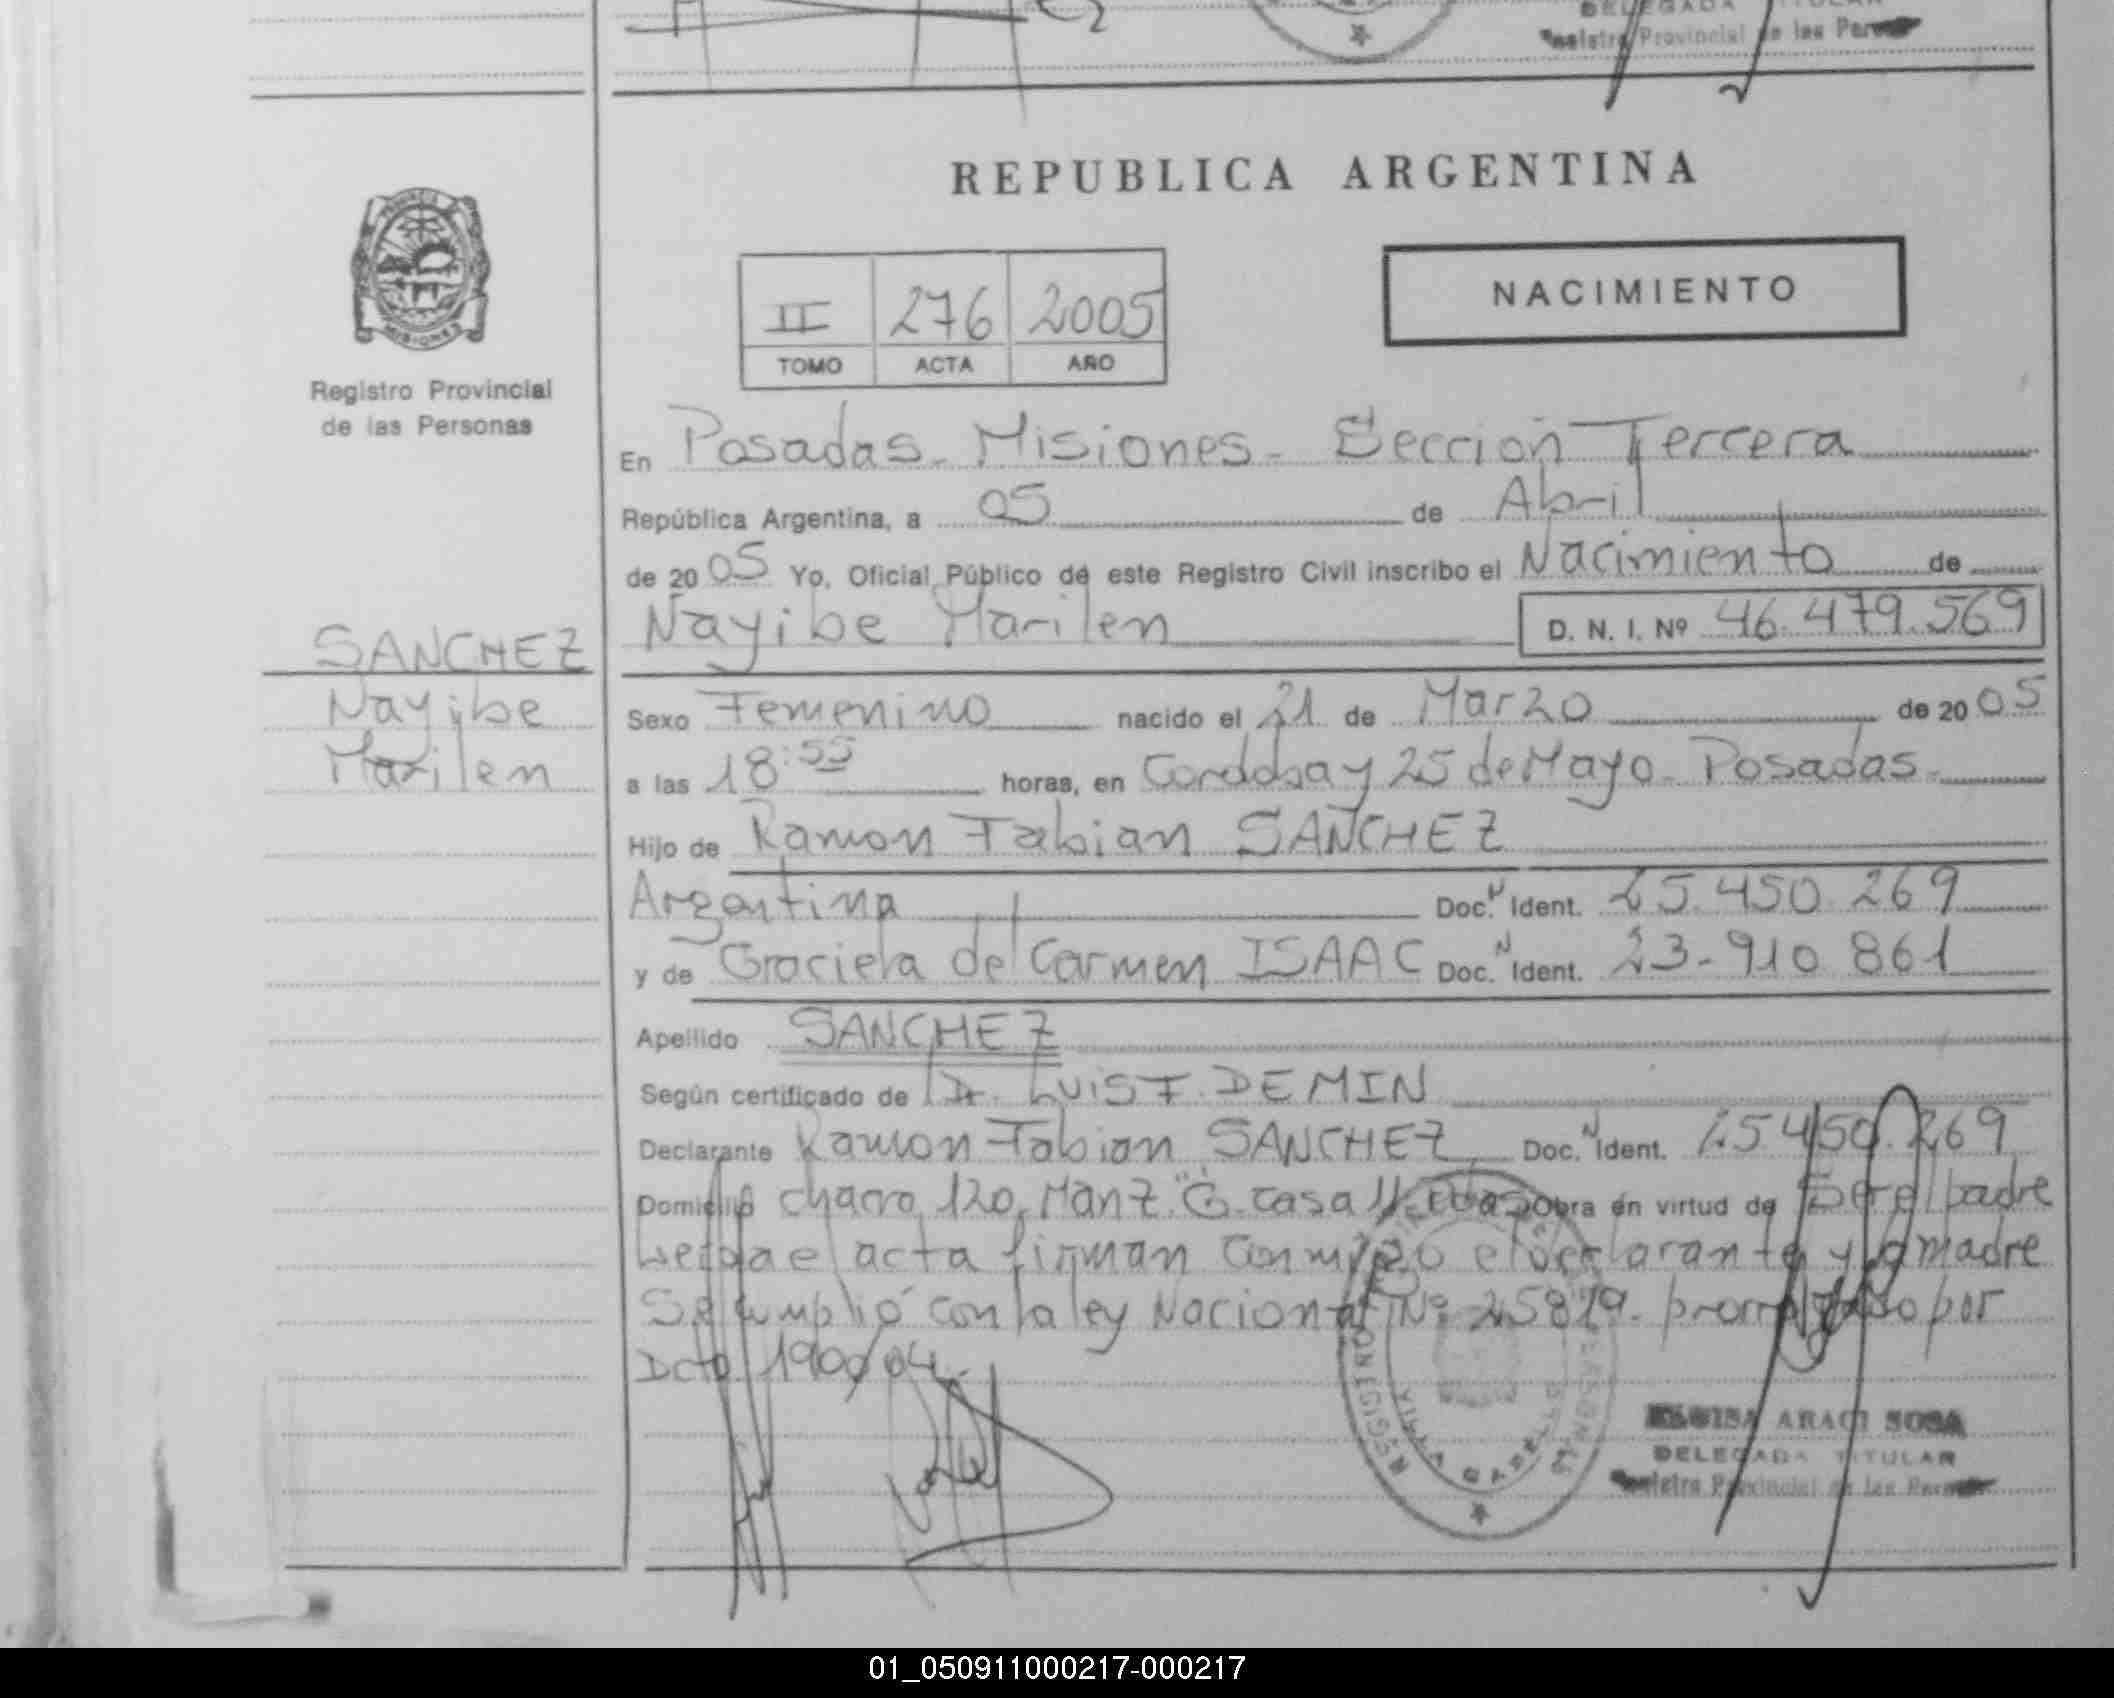 DELEGADA TITULAR
Registro Provincial de las
REPUBLICA ARGENTINA
NACIMIENTO
II 276 2005
TOMO ACTA AÑO
PROVINCIA DE
MISIONES
Registro Provincial
de las Personas
En Posadas - Misiones - Sección Tercera
República Argentina, a 05 de Abril
de 2005 Yo, Oficial Público de este Registro Civil inscribo el Nacimiento de
Nayibe Marilen D. N. I. Nº 46.479.569
SANCHEZ
Nayibe
Marilen
Sexo Femenino nacido el 21 de Marzo de 2005
a las 18:55 horas, en Cordoba y 25 de Mayo - Posadas -
Hijo de Ramon Fabian SANCHEZ
Argentina Doc. N Ident. 25.450.269
y de Graciela del Carmen ISAAC Doc. N Ident. 23-910 861
Apellido SANCHEZ
Según certificado de Dr. LUIS F. DEMIN
Declarante Ramon Fabian SANCHEZ Doc. N Ident. 25.450.269
Domicilio chacra 120, Manz. "G" casa 11 Obra en virtud de Ser el padre
acta firman conmigo el declarante y la madre
Se cumplió con la ley Nacional Nº 25819. por
Dcto 190/04.
ARACI SOSA
DELEGADA TITULAR
Registro Provincial de las
01_050911000217-000217